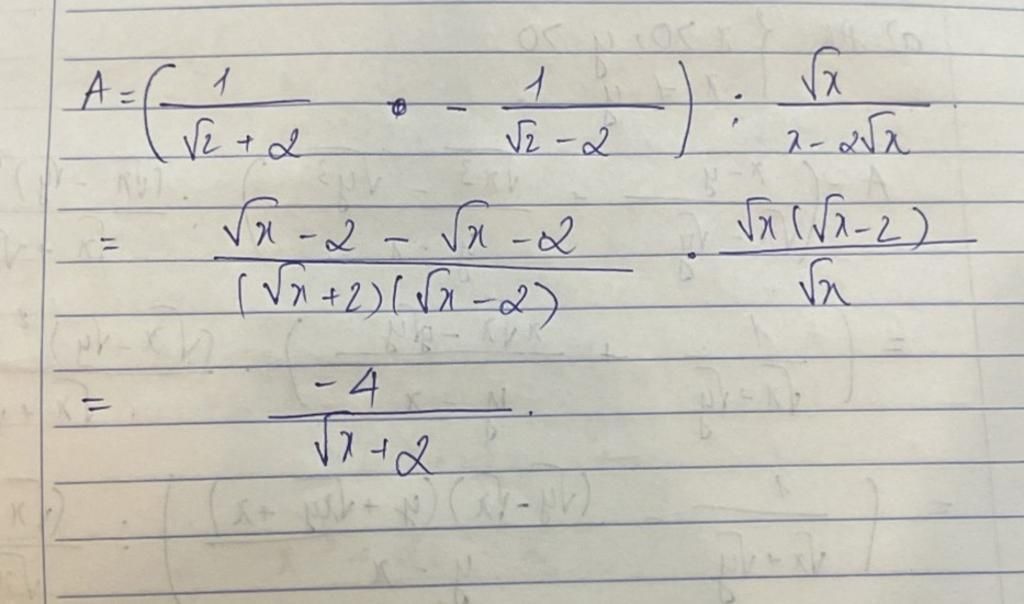 A = ( 1/(√2 + 2) - 1/(√2 - 2) ) : √x/(x - 2√x)
= (√x - 2 - √x - 2)/((√x + 2)(√x - 2)) . √x(√x - 2)/√x
= -4/(√x + 2) .